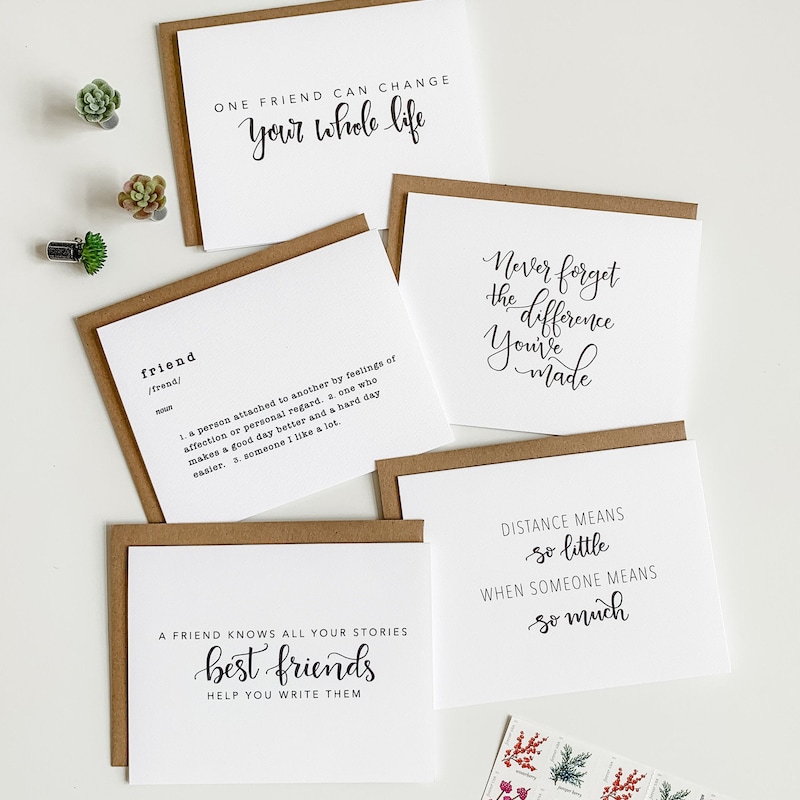 ONE FRIEND CAN CHANGE
Your whole life
Never forget
the difference
You've
made
friend
/frend/
noun
1. a person attached to another by feelings of
affection or personal regard. 2. one who
makes a good day better and a hard day
easier. 3. someone I like a lot.
DISTANCE MEANS
so little
WHEN SOMEONE MEANS
so much
A FRIEND KNOWS ALL YOUR STORIES
best friends
HELP YOU WRITE THEM
winterberry
juniper berry